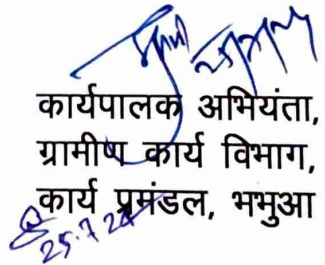 कार्यपालक अभियंता,
ग्रामीण कार्य विभाग,
कार्य प्रमंडल, भभुआ
25.7.24